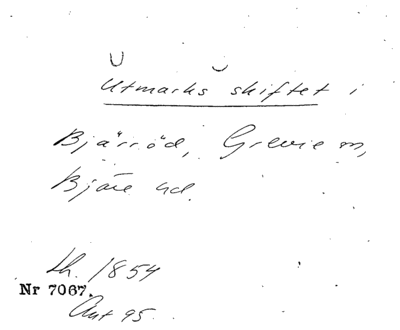 Utmarks skiftet i
Bjärröd, Grevie sn,
Bjäre hd.
th. 1854
Nr 7067.
Ant 95